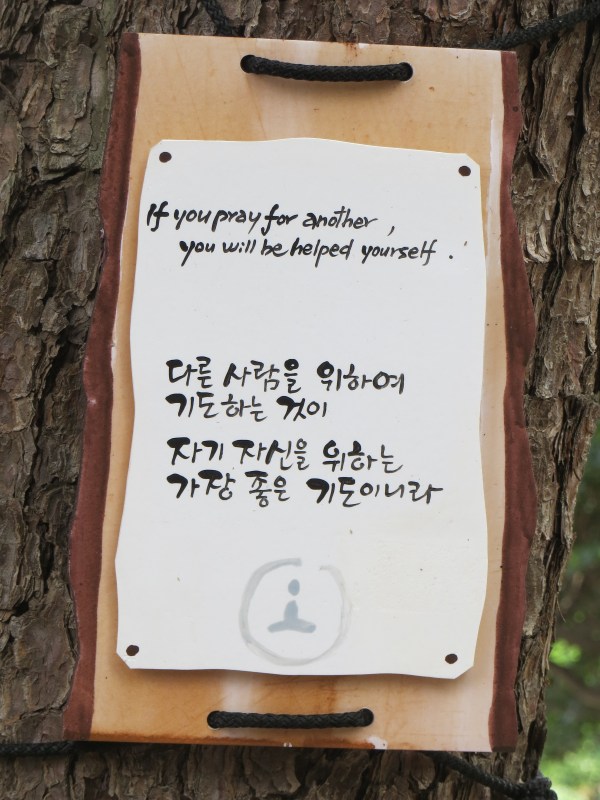 If you pray for another,
you will be helped yourself.
다른 사람을 위하여
기도하는 것이
자기 자신을 위하는
가장 좋은 기도이니라